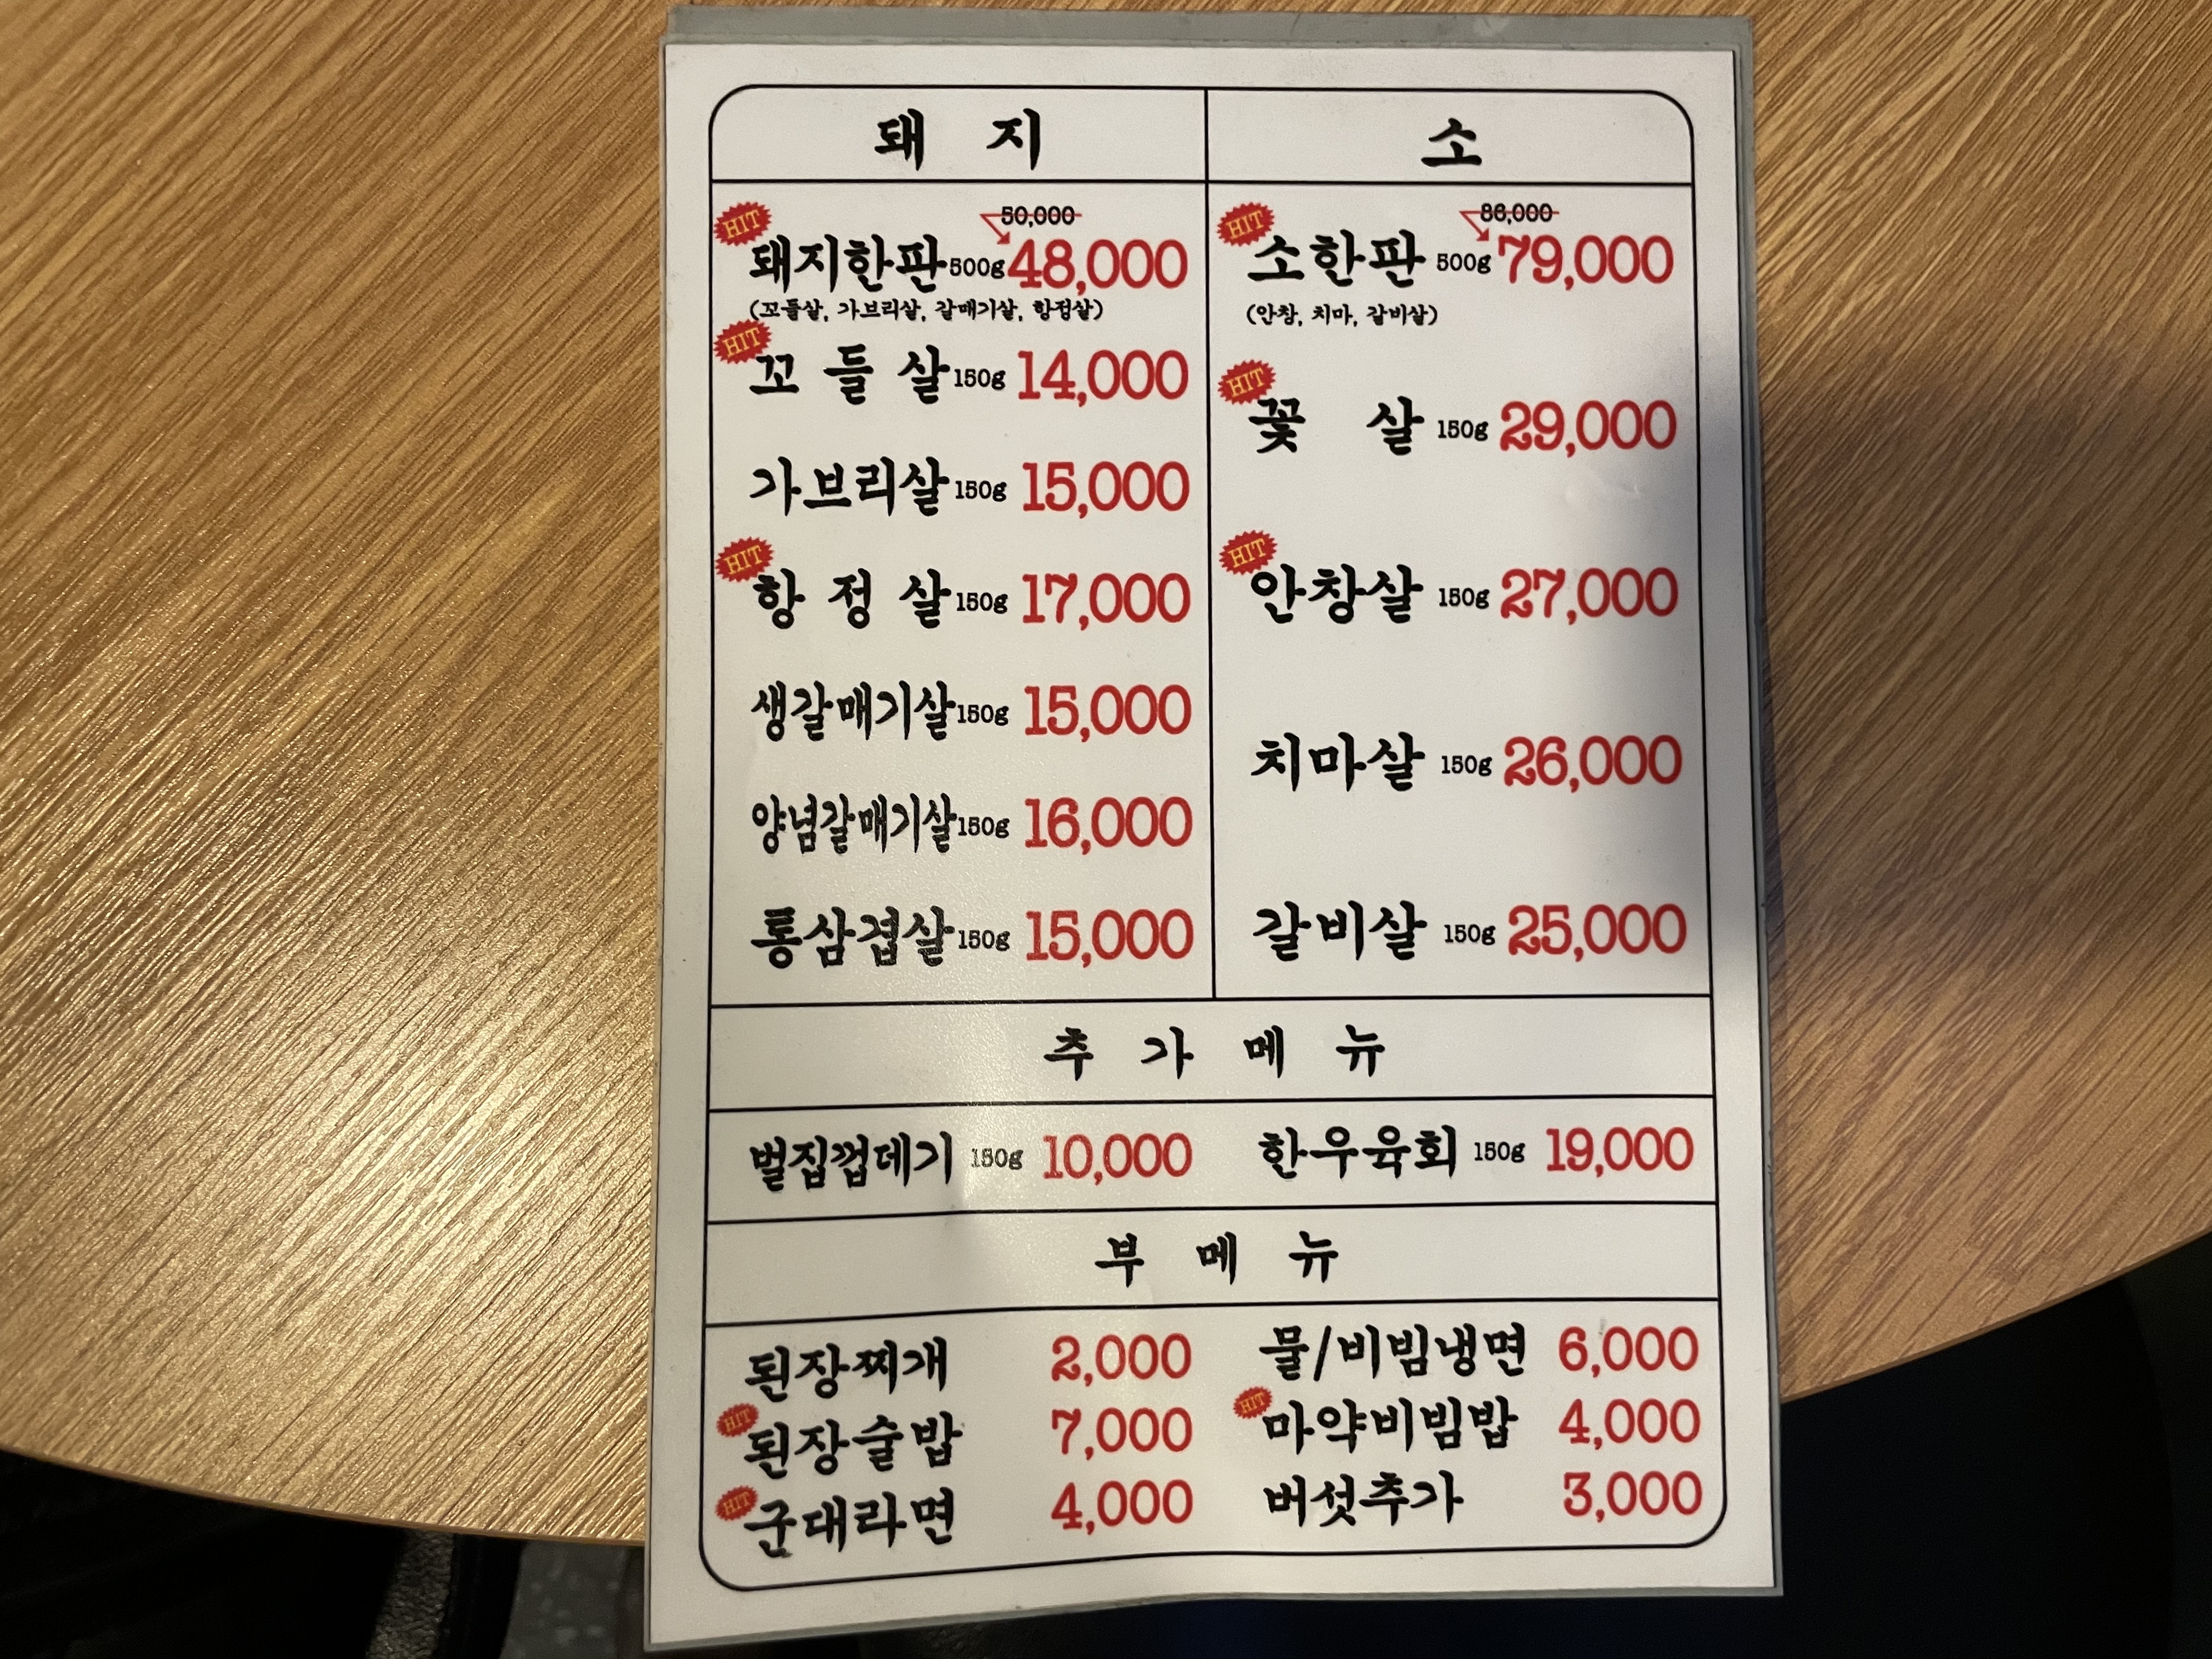 돼 지
50,000
HIT 돼지한판 500g 48,000
(꼬들살, 가브리살, 갈매기살, 항정살)
HIT 꼬 들 살 150g 14,000
가브리살 150g 15,000
HIT 항 정 살 150g 17,000
생갈매기살 150g 15,000
양념갈매기살 150g 16,000
통삼겹살 150g 15,000
소
86,000
HIT 소한판 500g 79,000
(안창, 치마, 갈비살)
HIT 꽃 살 150g 29,000
HIT 안창살 150g 27,000
치마살 150g 26,000
갈비살 150g 25,000
추 가 메 뉴
벌집껍데기 150g 10,000
한우육회 150g 19,000
부 메 뉴
된장찌개 2,000
HIT 된장술밥 7,000
HIT 군대라면 4,000
물/비빔냉면 6,000
HIT 마약비빔밥 4,000
버섯추가 3,000